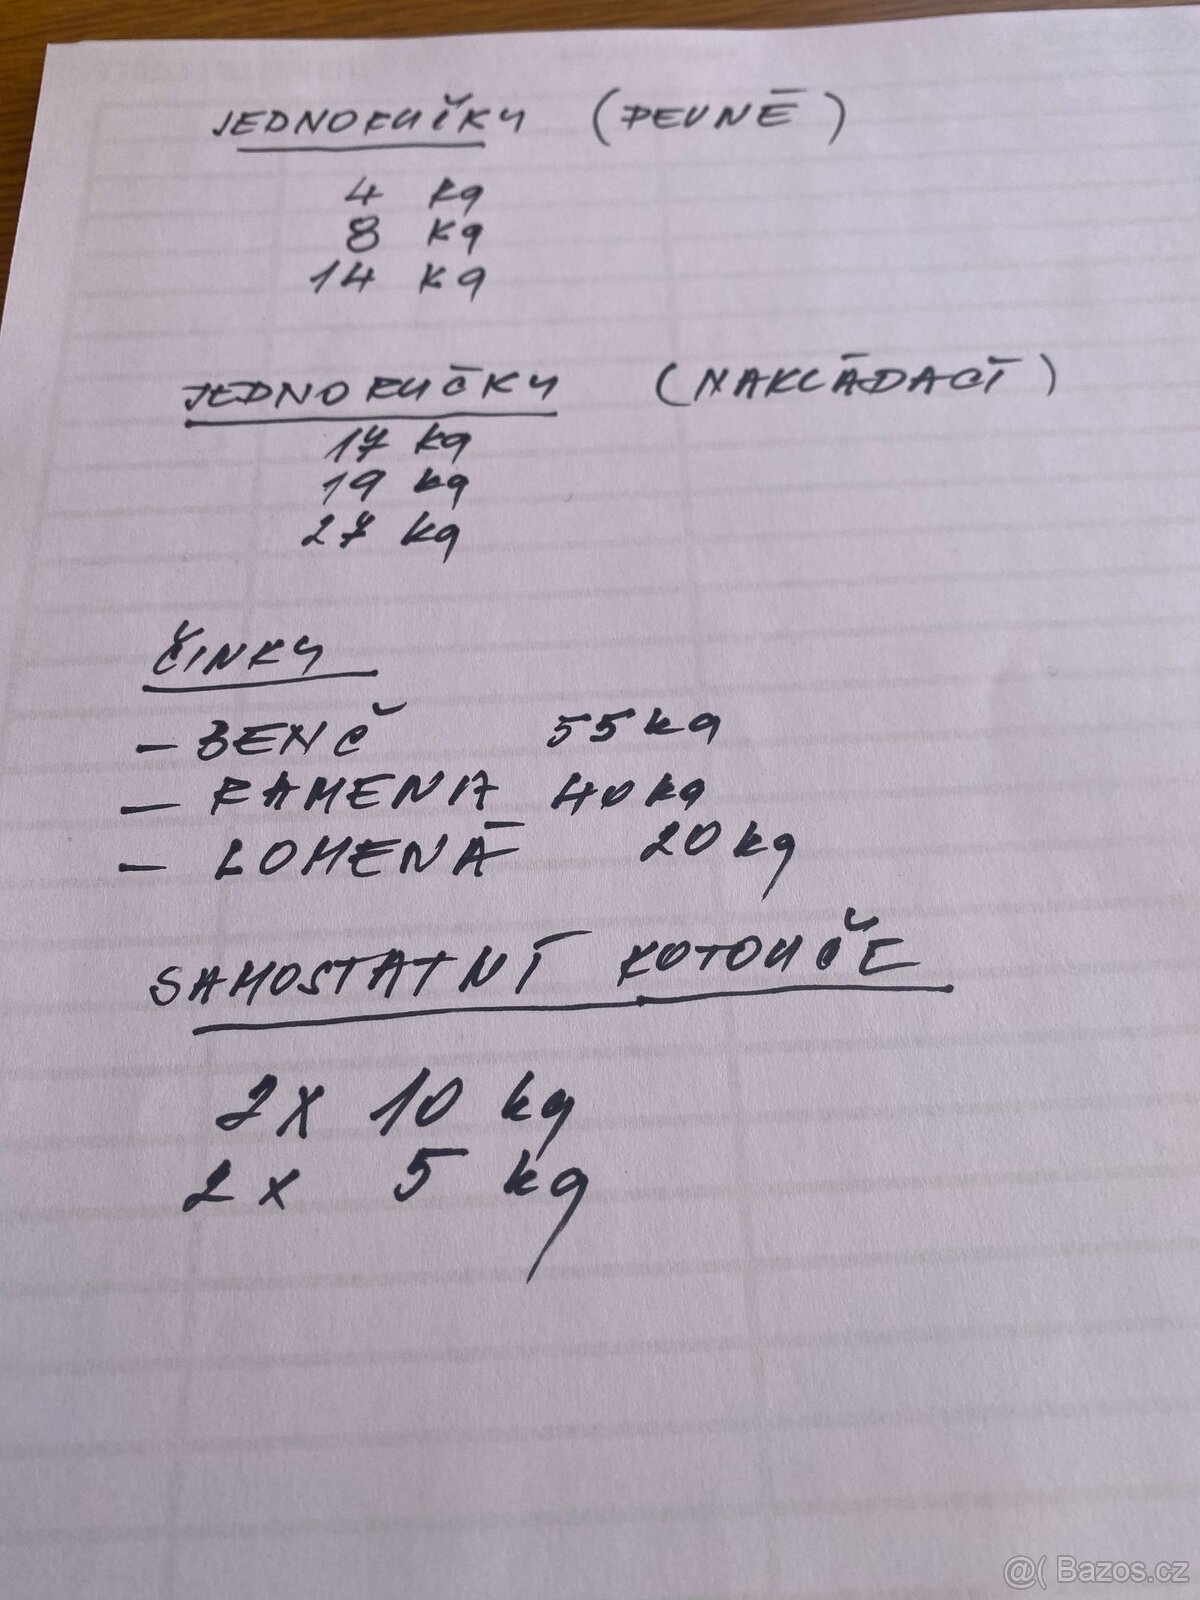 JEDNORUČKY (PEVNÉ)
4 kg
8 kg
14 kg
JEDNORUČKY (NAKLÁDACÍ)
17 kg
19 kg
27 kg
ČINKY
- BENČ 55 kg
- RAMENA 40 kg
- LOMENÁ 20 kg
SAMOSTATNÍ KOTOUČE
2x 10 kg
2x 5 kg
@( Bazos.cz